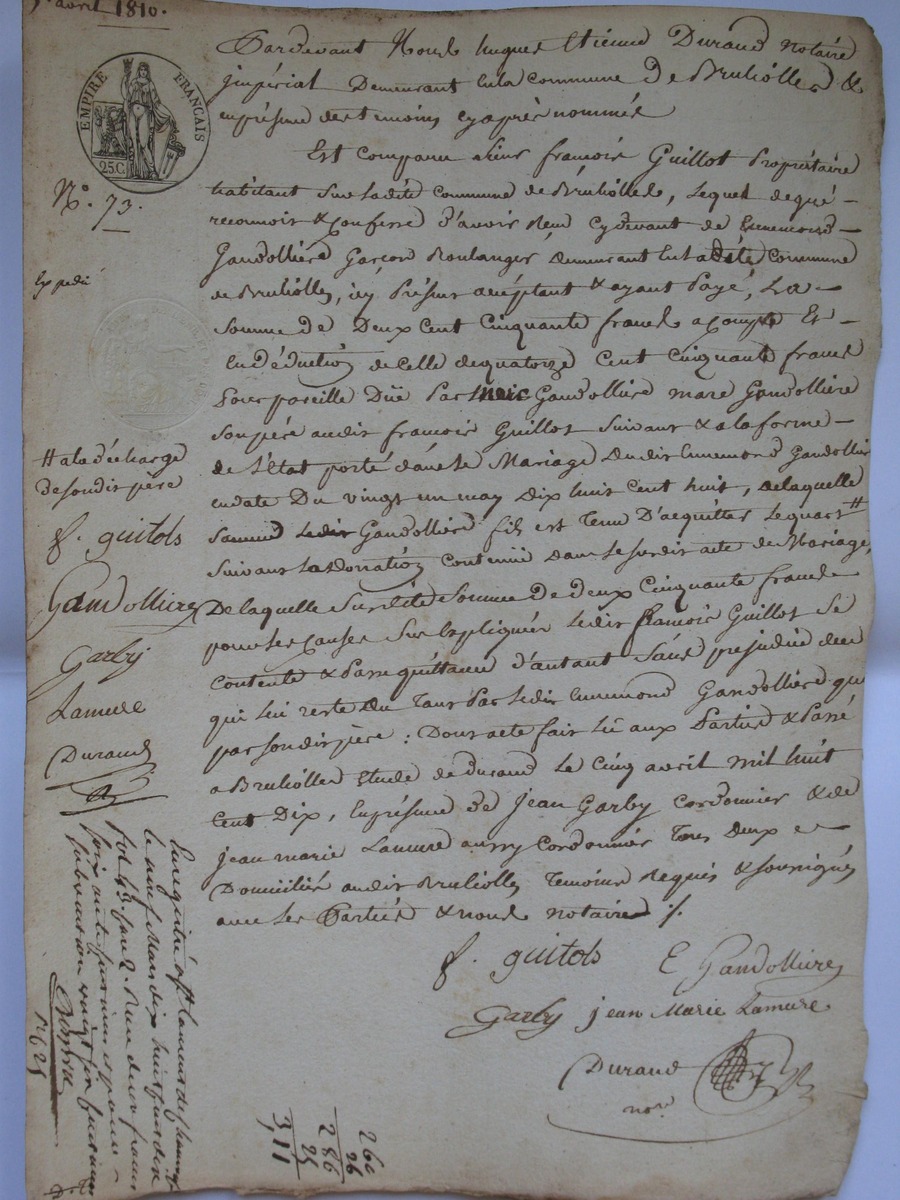 5 avril 1810.
EMPIRE FRANCAIS
25.C
N.o 73.
Expedié
Pardevant Nous hugues Etienne Durand notaire
jmpérial Demeurant en la commune De Brulliolles &
en présence des temoins cyaprès nommés
Est comparu sieur francois Guillot Propriétaire
habitant sur ladite commune de Brulliolles, Lequel de gré
reconnoit & confesse D'avoir Reçu cydevant de Ennemond
Gandollière Garçon Boulanger Demeurant en ladite Commune
de Brulliolles, icy Présent acceptant & ayant Payé, La
somme de Deux Cent Cinquante francs acompte Et
En déduction de celle de quatorze Cent Cinquante francs
Pour pareille Düe Par Gandollière marc Gandollière
son père audit francois Guillot suivant & a la forme
de l'état porté dans le Mariage dudit Ennemond Gandollière
en date Du vingt un may Dix huit cent huit, de laquelle
somme ledit Gandollière fils est Tenu D'acquitter le quart #
# a la décharge
de sondit père
suivant la donnation Contenüe dans le susdit acte de Mariage,
De laquelle susdite somme de deux Cinquante francs
pour les causes sus Expliquées ledit francois Guillot se
contente & Passe quittance d'autant sans prejudice de ce
qui lui reste du Tant Par ledit Ennemond Gandollière que
par sondit père : Dont acte fait Lü aux Parties & Passé
a Brulliolles Etude de Durand Le Cinq avril mil huit
Cent Dix, En présence de Jean Garby Cordonier & de
jean marie Lamure aussy Cordonnier Tous Deux
Domiciliés audit Brulliolles Temoins Requis & soussignés
avec les Parties & nous notaire ./.
f. guitols
Gandolliere
Garby
Lamure
Durand
f. guitols E Gandolliere
Garby jean Marie Lamure
Durand
nore
Enregistré a St Laurent de Chamousset
le neuf dix huit cent dix
fol 43. Reçu deux francs
soixante centimes pour
subvention vingt six centimes
260
26
286
25
311